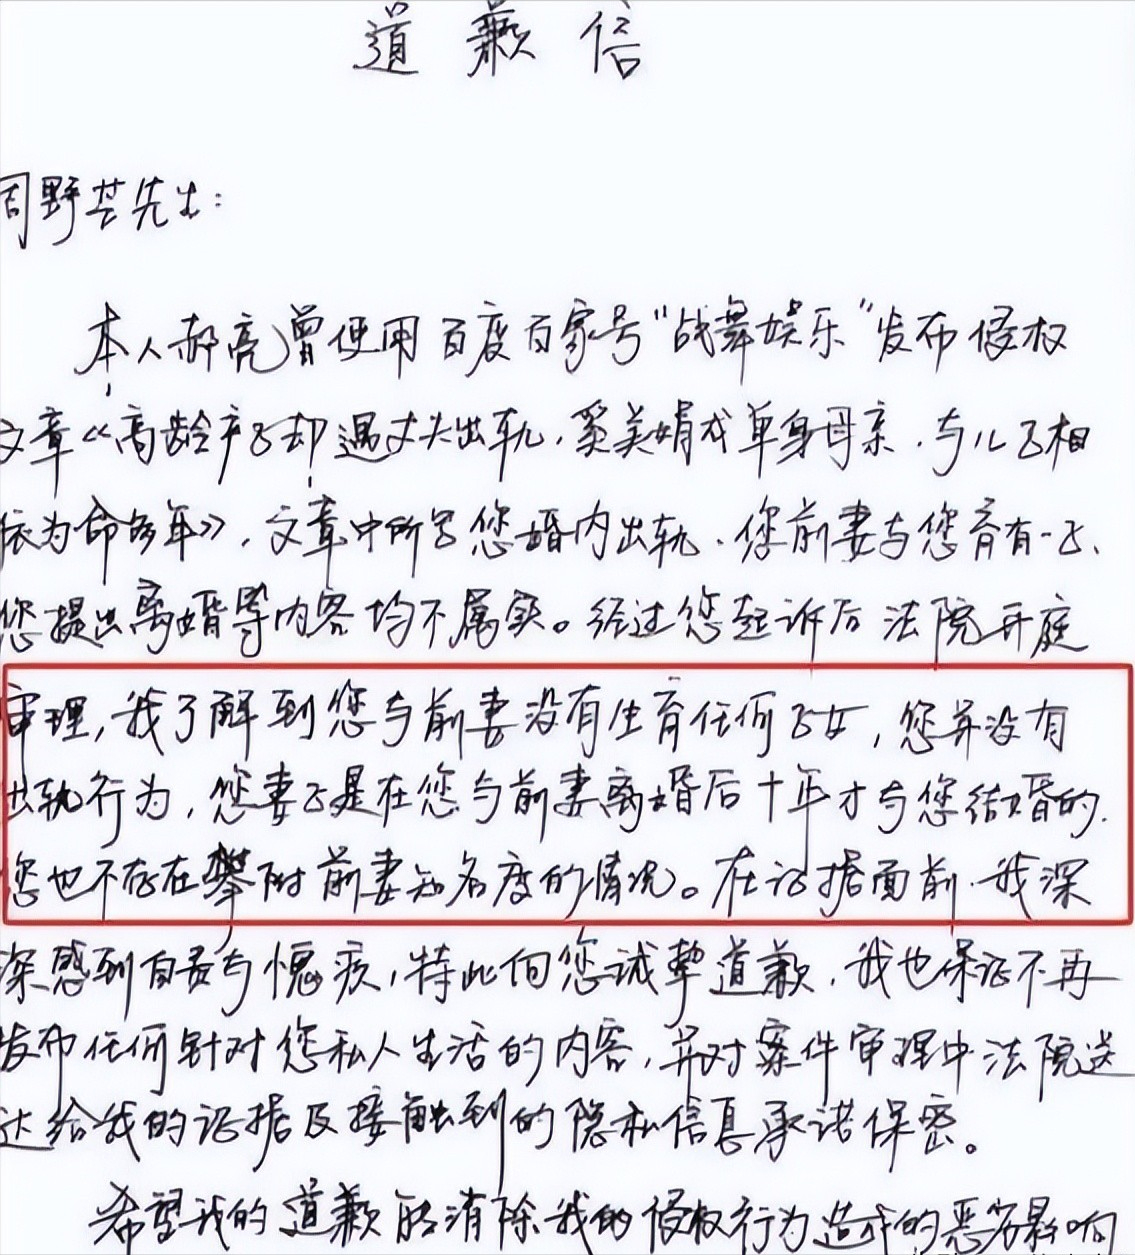 道歉信
周野芒先生：
本人郝亮曾使用百度百家号“战舞娱乐”发布侵权
文章《高龄产子却遇丈夫出轨，奚美娟成单身母亲，与儿子相
依为命多年》，文章中所写您婚内出轨、您前妻与您育有一子、
您提出离婚等内容均不属实。经过您起诉后法院开庭
审理，我了解到您与前妻没有生育任何子女，您并没有
出轨行为，您妻子是在您与前妻离婚后十年才与您结婚的，
您也不存在攀附前妻知名度的情况。在证据面前，我深
深感到自责与愧疚，特此向您诚挚道歉，我也保证不再
发布任何针对您私人生活的内容，并对案件审理中法院送
达给我的证据及接触到的隐私信息承诺保密。
希望我的道歉能消除我的侵权行为造成的恶劣影响